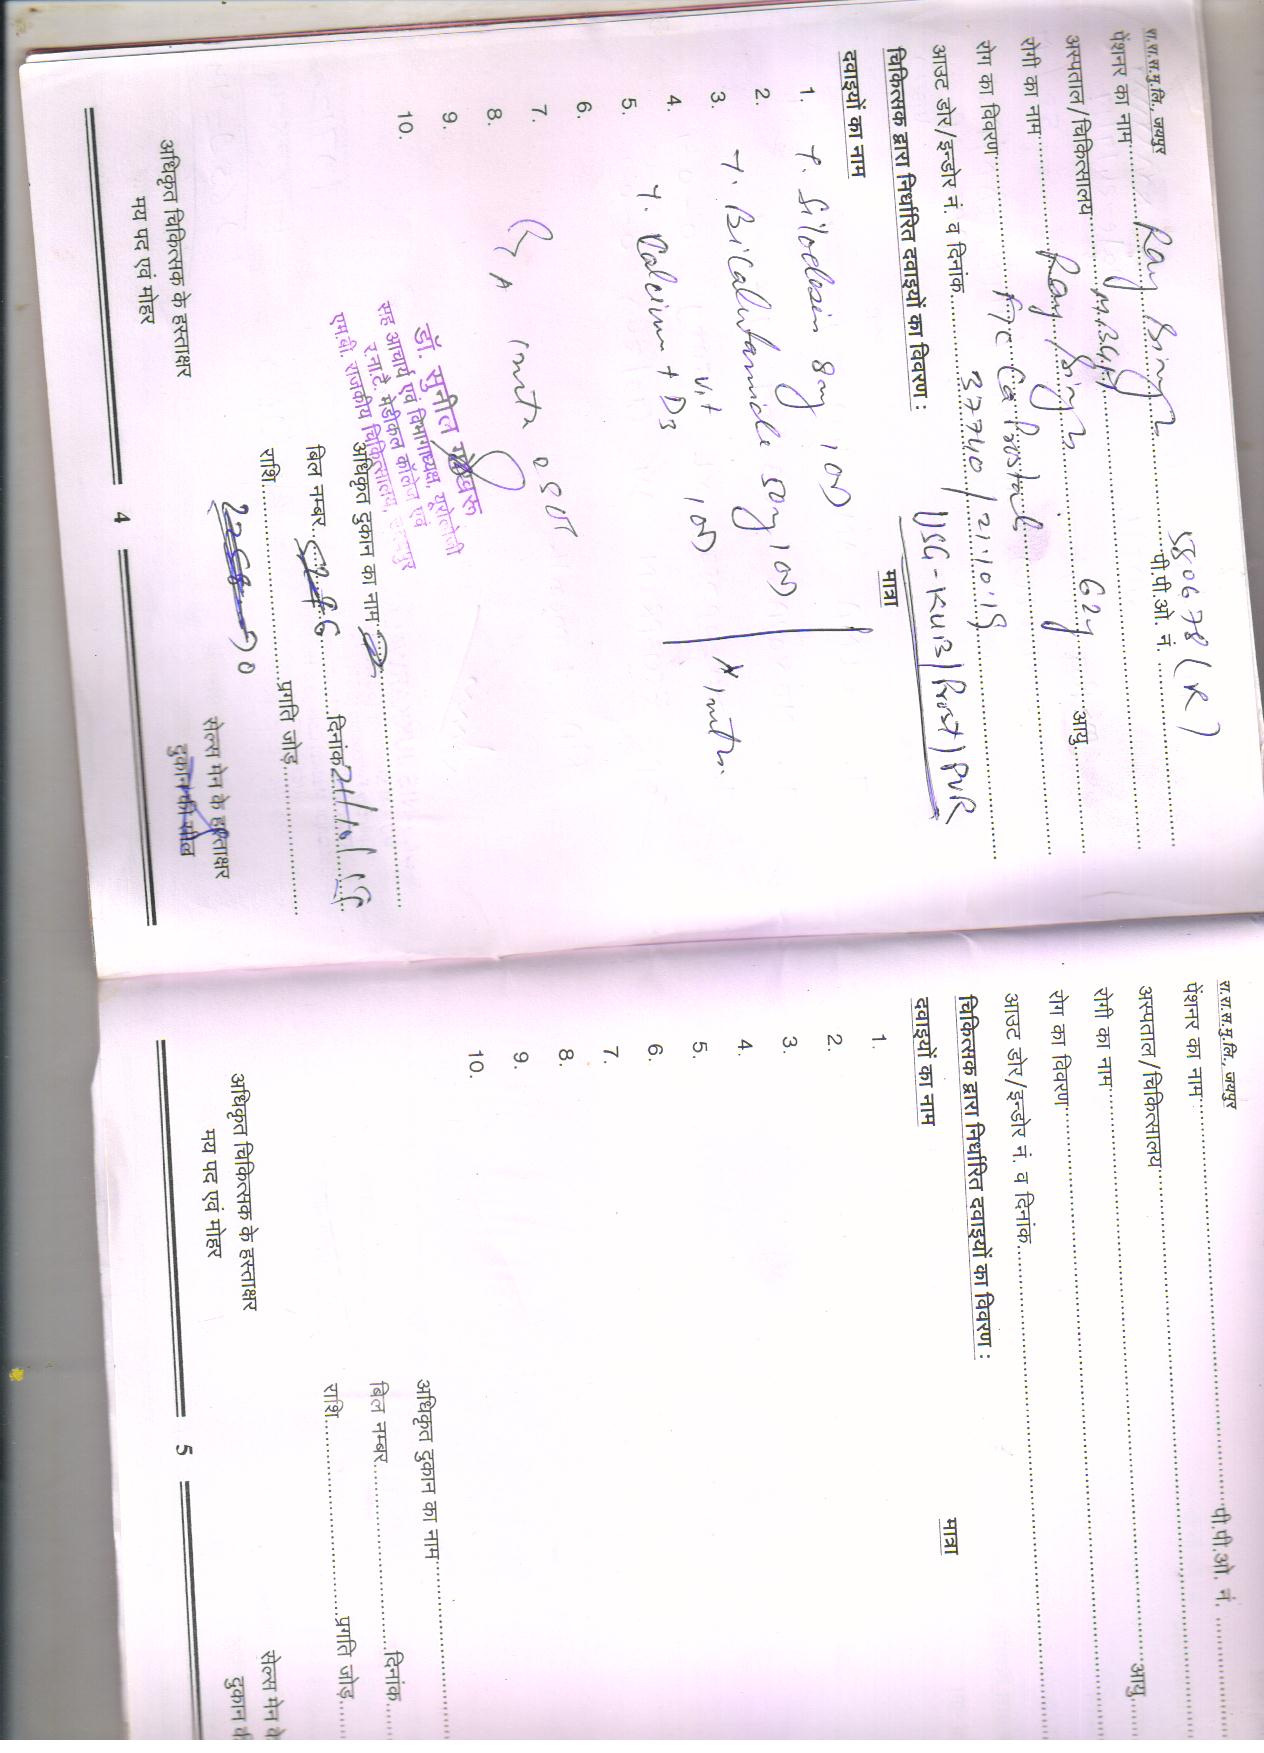 रा.रा.स.मु.लि., जयपुर
पेंशनर का नाम Ray Singh पी.पी.ओ. नं. 580678 (R)
अस्पताल/चिकित्सालय MBGH
रोगी का नाम Ray Singh 62y आयु
रोग का विवरण F/C Ca Prostate
आउट डोर/इन्डोर नं. व दिनांक 37740 / 21.10.19
चिकित्सक द्वारा निर्धारित दवाइयों का विवरण :
USG - KUB / Prost / PVR
दवाइयों का नाम मात्रा
1. T. Silodosin 8mg 1 OD
2. T. Bicalutamide 50mg 1 OD x 1 mth
3. Vit
4. T. Calcium + D3 1 OD
5.
6.
7.
8.
9.
10.
डॉ. सुनील गोखरू
सह आचार्य एवं विभागाध्यक्ष, यूरोलोजी
र.ना.टे. मेडीकल कॉलेज एवं
एम.बी. राजकीय चिकित्सालय, उदयपुर
अधिकृत दुकान का नाम
बिल नम्बर दिनांक 21/10/19
राशि प्रगति जोड़
अधिकृत चिकित्सक के हस्ताक्षर
मय पद एवं मोहर
सेल्स मेन के हस्ताक्षर
दुकान की सील
4
रा.रा.स.मु.लि., जयपुर
पेंशनर का नाम पी.पी.ओ. नं.
अस्पताल/चिकित्सालय
रोगी का नाम आयु
रोग का विवरण
आउट डोर/इन्डोर नं. व दिनांक
चिकित्सक द्वारा निर्धारित दवाइयों का विवरण :
दवाइयों का नाम मात्रा
1.
2.
3.
4.
5.
6.
7.
8.
9.
10.
अधिकृत दुकान का नाम
बिल नम्बर दिनांक
राशि प्रगति जोड़
अधिकृत चिकित्सक के हस्ताक्षर
मय पद एवं मोहर
सेल्स मेन के
दुकान की
5